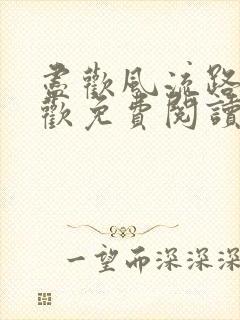 盡歡風流路
歡免費閱讀
一望而深深深